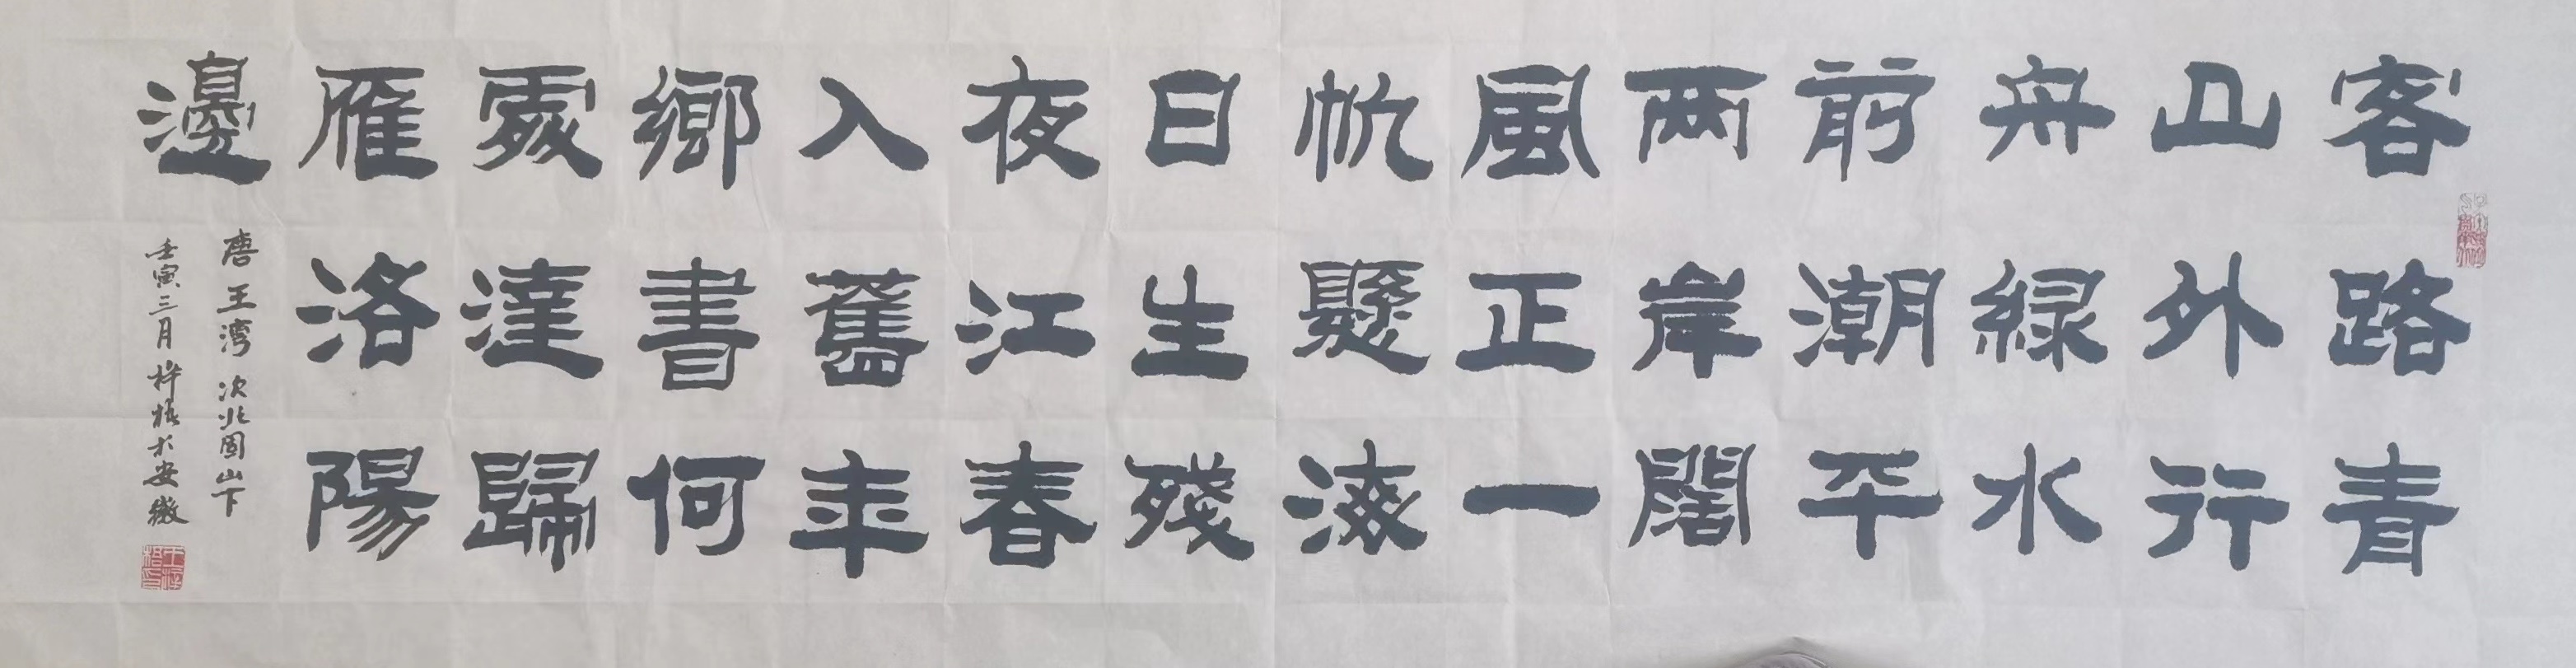 客路青
山外行
舟緑水
前潮平
两岸闊
風正一
帆懸海
日生殘
夜江春
入舊年
鄉書何
處達歸
雁洛陽
邊
唐王湾 次北固山下
壬寅三月梓於安徽